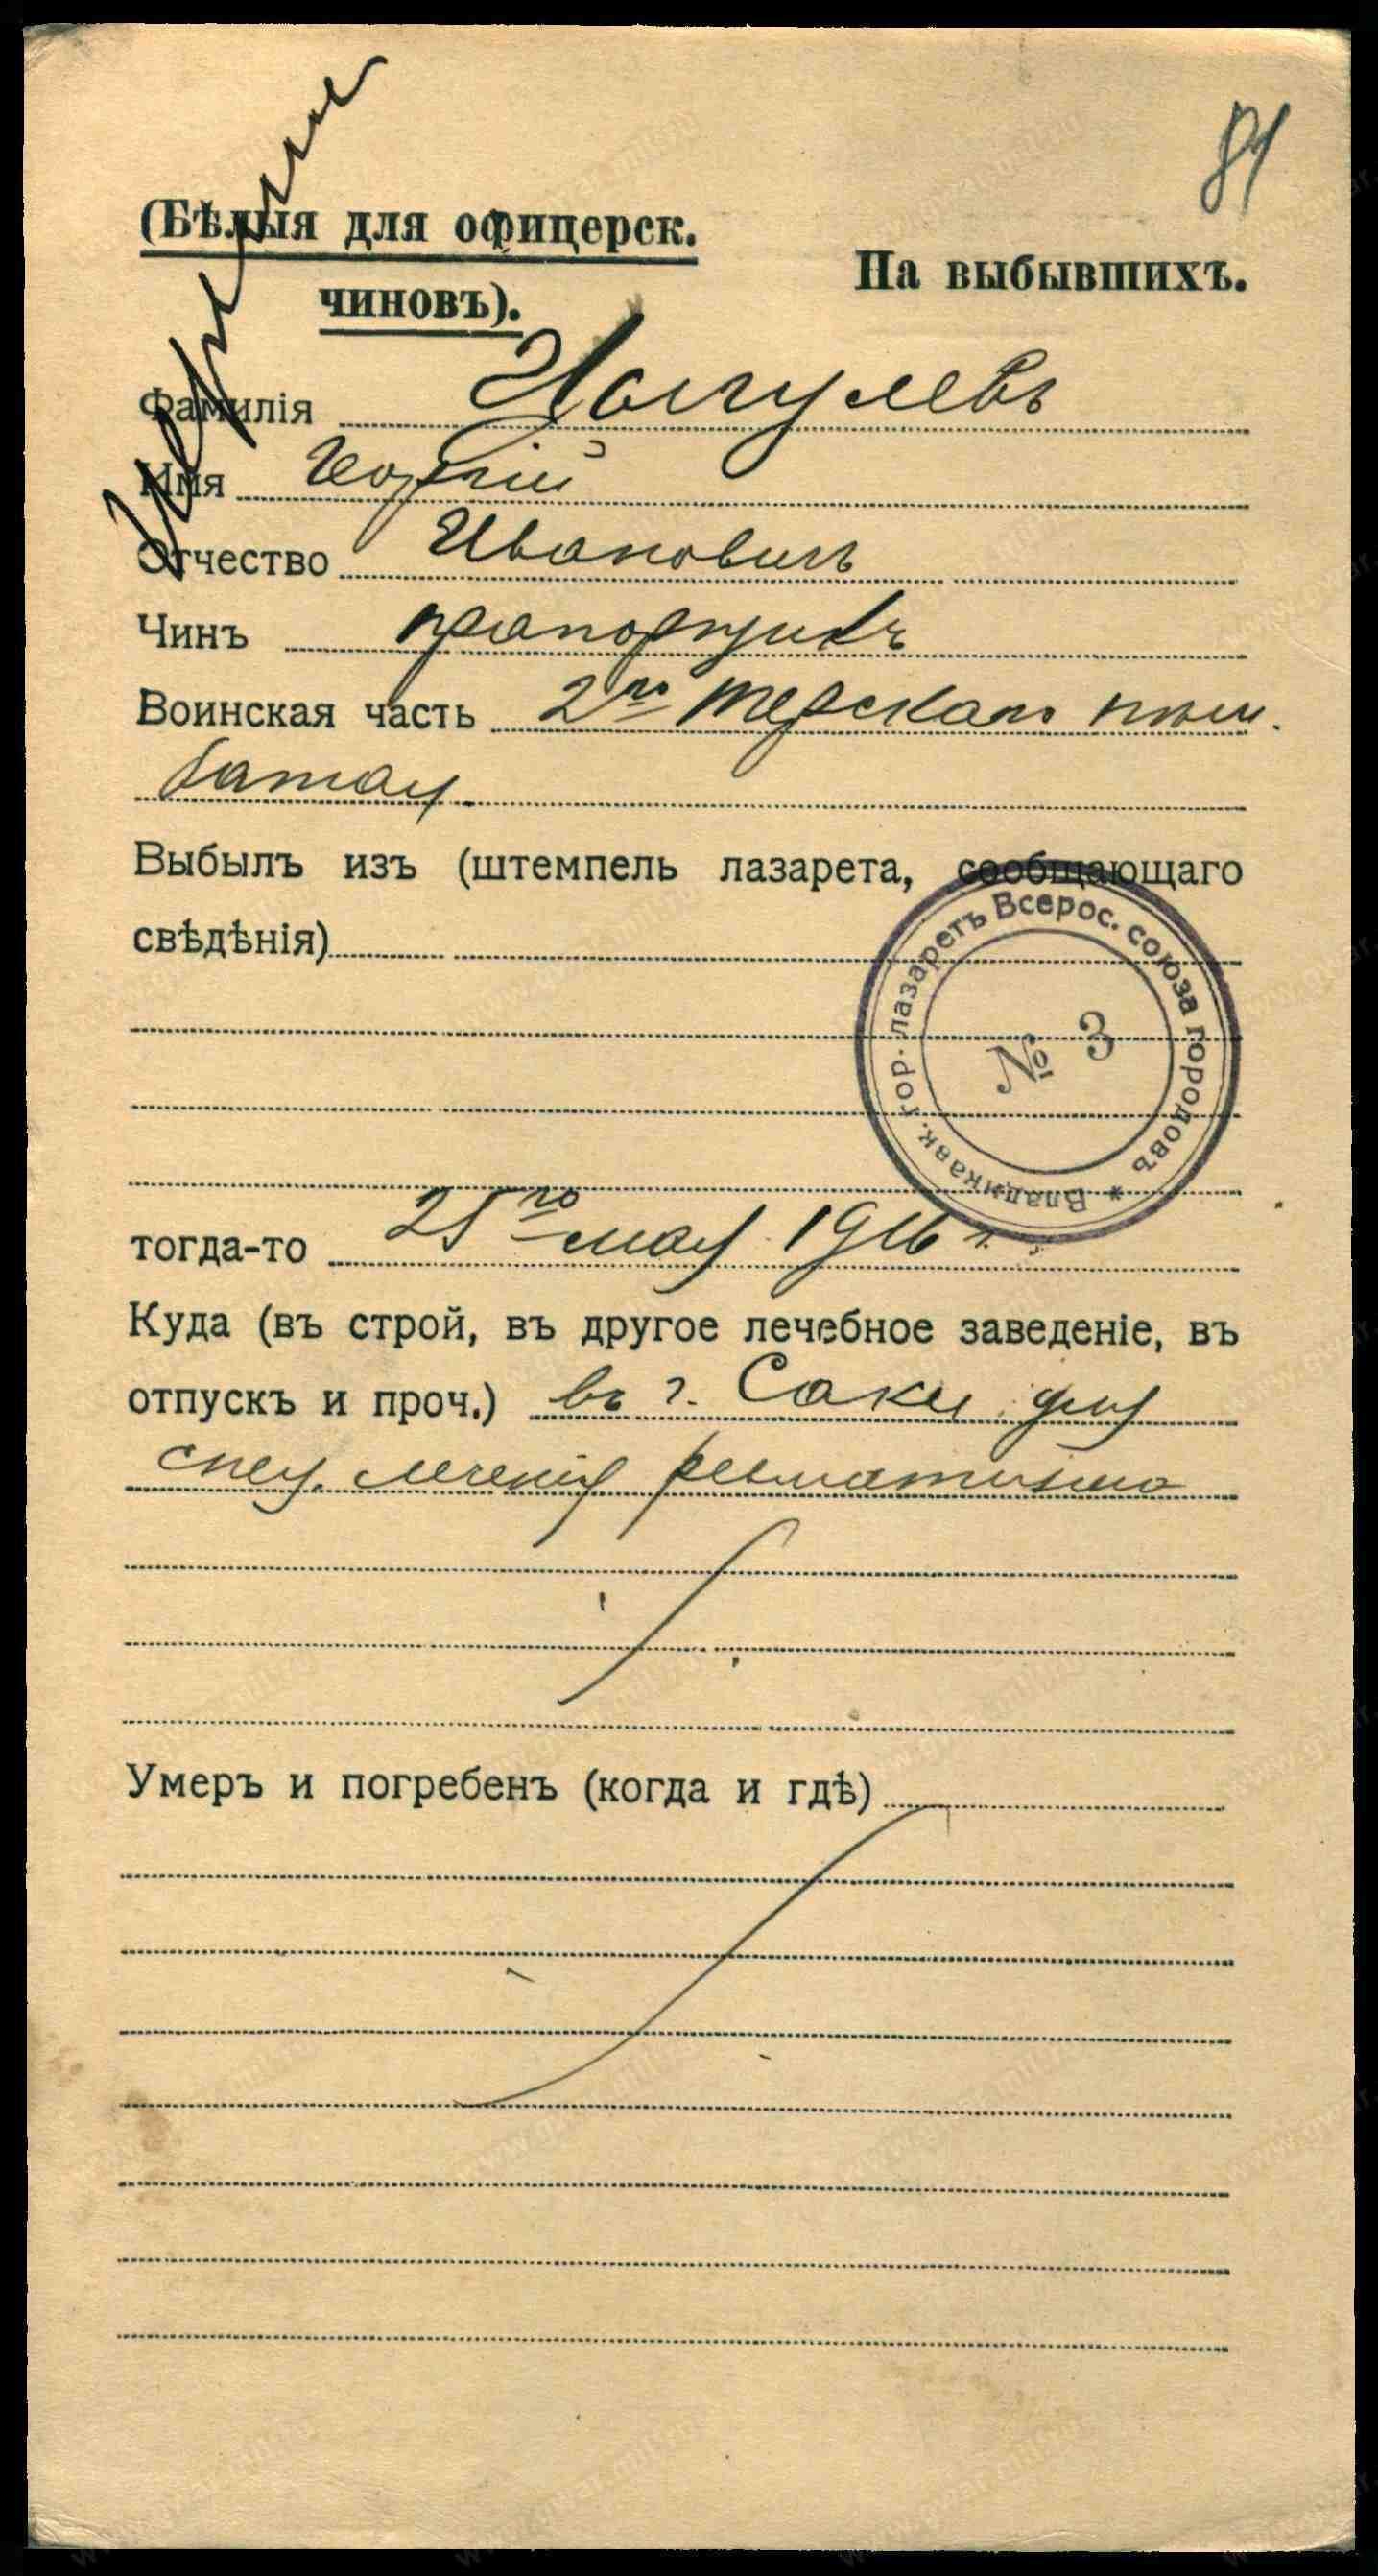 81
(Бѣлыя для офицерск.
чиновъ).
На выбывшихъ.
Фамилія Цогулевъ
Имя Георгій
Отчество Ивановичъ
Чинъ прапорщикъ
Воинская часть 2го Терскаго пласт.
батал.
Выбылъ изъ (штемпель лазарета, сообщающаго
свѣдѣнія)
Владикавк. гор. лазаретъ Всерос. союза городовъ *
№ 3
тогда-то 25го мая 1916 г.
Куда (въ строй, въ другое лечебное заведеніе, въ
отпускъ и проч.) въ г. Саки для
спец. леченія ревматизма
Умеръ и погребенъ (когда и гдѣ)